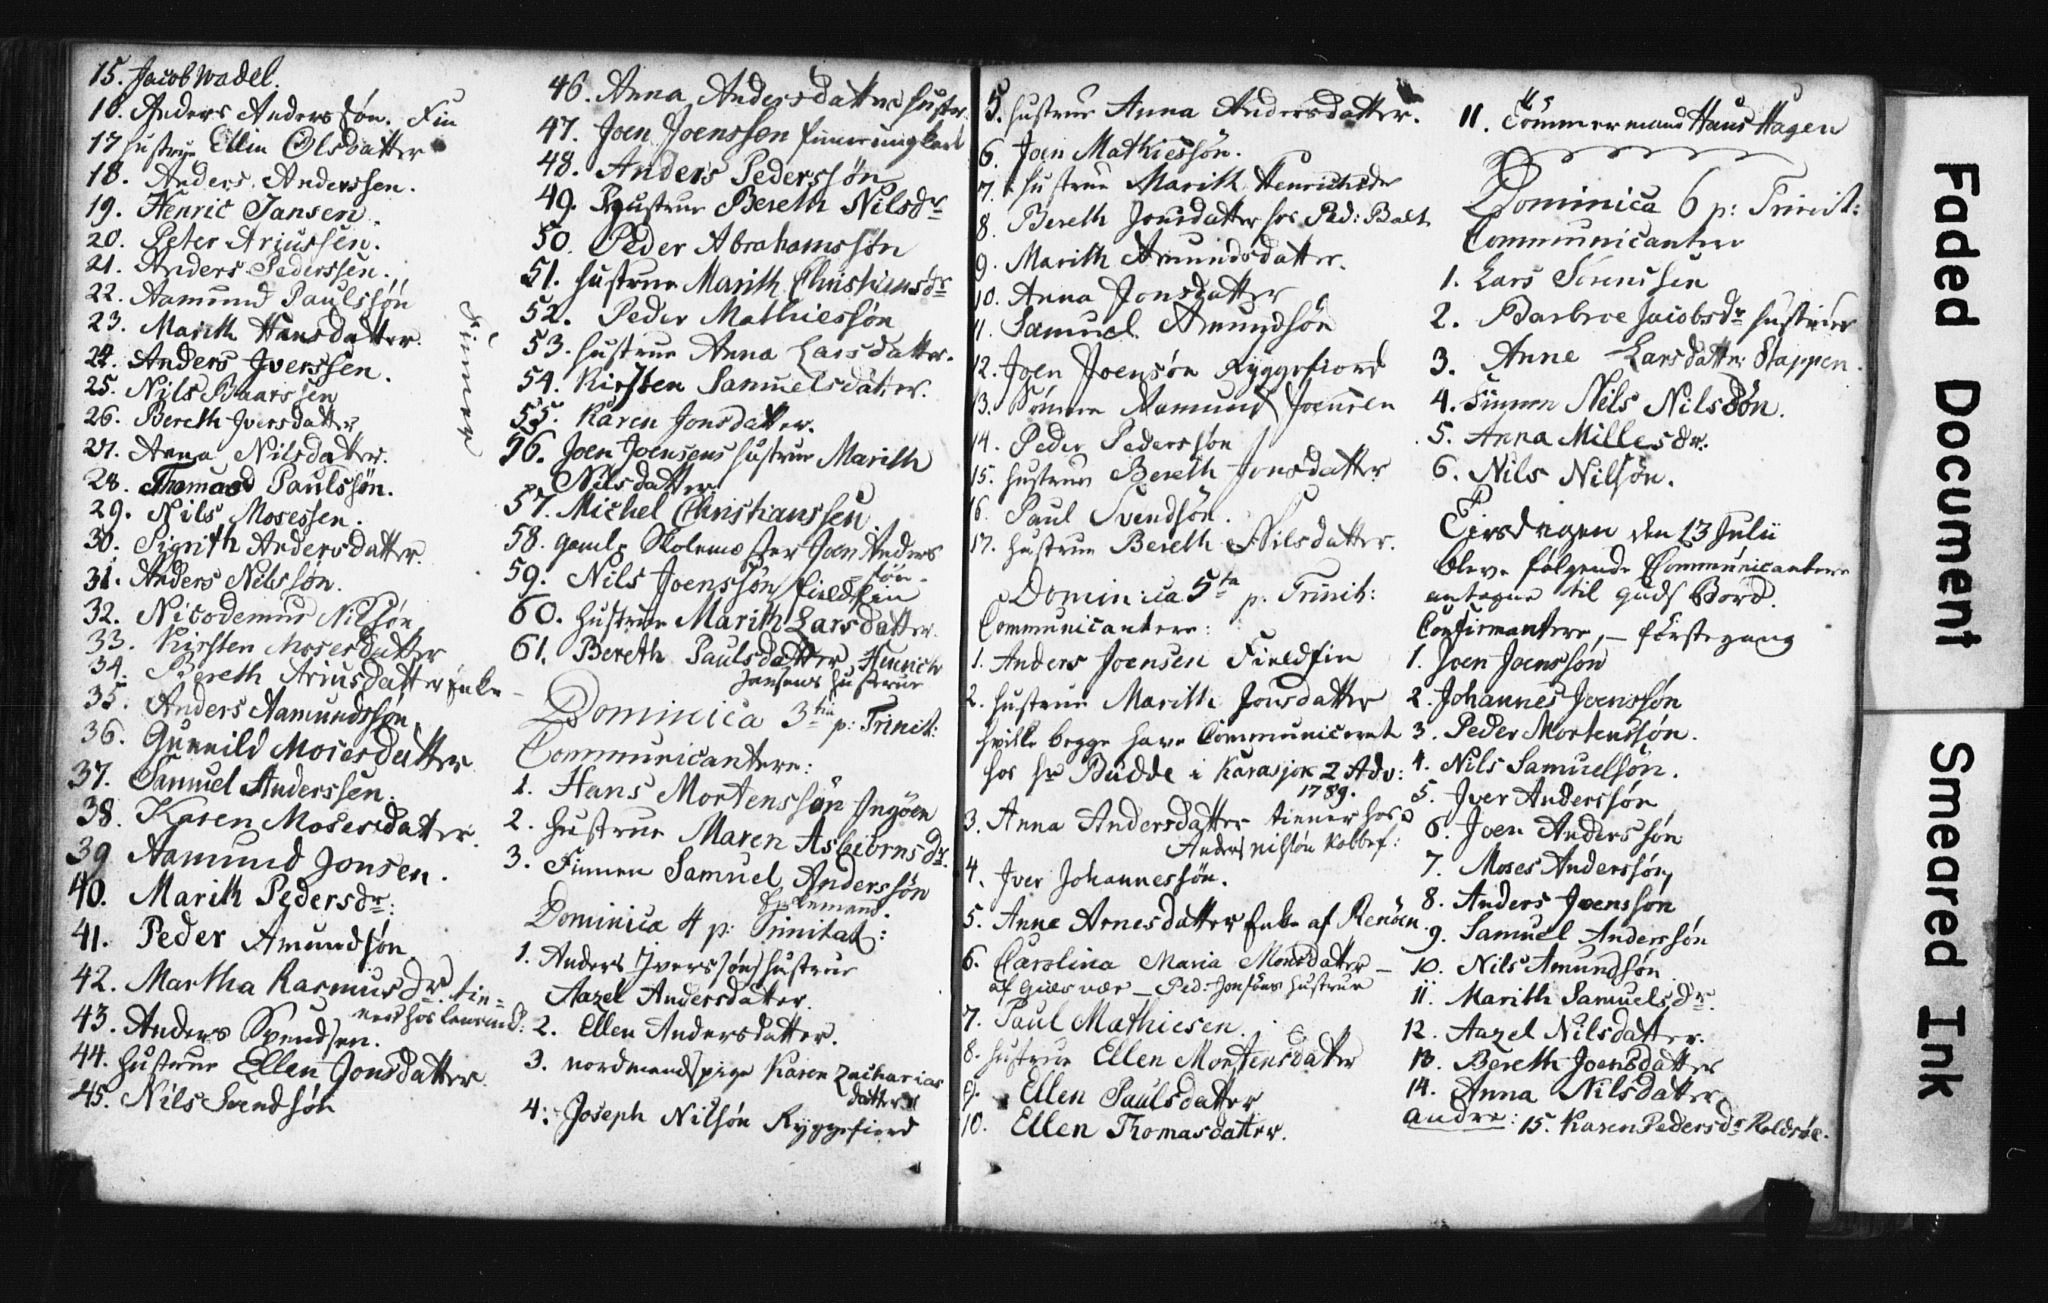 15. Jacob Wadel.
16. Anders Andersson. Fin
17 hustrue Ellin Olsdatter
18. Anders Anderssen.
19. Henric Jansen.
20. Peter Ariussen.
21. Anders Pederssen.
22. Aamund Paulssøn
23. Marith Hansdatter.
24. Anders Iverssen.
25. Nils Baarssen
26. Bereth Iversdatter
27. Anna Nilsdatter.
28. Thomas Paulssøn.
29. Nils Mosessen.
30. Sigrith Andersdatter.
31. Anders Nilssøn.
32. Nicodemus Nilssøn
33. Kirsten Mosesdatter
34. Bereth Ariusdatter Enke
35. Anders Aamundssøn
36. Gunnild Mosesdatter
37. Samuel Anderssen.
38. Karen Mosesdatter.
39 Aamund Jonsen.
40. Marith Pedersdr:
41. Peder Amundsøn
42. Martha Rasmusdr. tie=
ner hos
43. Anders Svendsen.
44. hustrue Ellen Jonsdatter.
45. Nils Svendsøn
Finner
46. Anna Andersdatter hustr
47. Joen Joenssen
48. Anders Pederssøn
49. Hustrue Bereth Nilsdr
50. Peder Abrahamssøn
51. hustrue Marith Christiansdr
52. Peder Mathiessøn
53. hustrue Anna Larsdatter.
54. Kirsten Samuelsdatter.
55. Karen Jonsdatter.
56. Joen Joensens hustrue Marith
Nilsdatter
57. Michel Christianssen
58. gamle Skolemester Joen Anders
søn.
59. Nils Joenssøn fieldfin
60. hustrue Marith Larsdatter.
61. Bereth Paulsdatter Henrich
Jansens hustrue
Dominica 3tia p: Trinit:
Communicantere:
1. Hans Mortenssøn Ingøen
2. hustrue Maren Asbiørnsdr.
3. Finnen Samuel Anderssøn
Dominica 4 p: Trinitat:
1. Anders Iverssøns hustrue
Aazel Andersdatter.
2. Ellen Andersdatter.
3. nordmands pige Karen Zacharias
datter
4. Joseph Nilsøn Ryggefiord
5. hustrue Anna Andersdatter.
6. Joen Mathiessøn.
7. hustrue Marith Henrichsdr
8. Bereth Jonsdatter hos Ped: Balt
9. Marith Amundsdatter.
10. Anna Jonsdatter
11. Samuel Amundsøn
12. Joen Joensøn Ryggefiord
13. Aamund Joensen
14. Peder Pederssøn
15. hustrue Bereth Jonsdatter
16. Paul Svendsøn.
17. hustrue Bereth Nilsdatter.
Dominica 5ta p. Trinit:
Communicantere:
1. Anders Joensen Fieldfin
2. hustrue Marith Jonsdatter
hvilke begge have Communiceret
hos hr Budde i Karasjok 2 Adv:
1789.
3. Anna Andersdatter tiener hos
Anders Nilsøn Kobbef:
4. Iver Johannessøn.
5. Anne Arnesdatter Enke af Renöen
6. Carolina Maria Monsdatter -
af Giæsvær - Ped: Jonsöns hustrue
7. Paul Mathiesen.
8. hustrue Ellen Mortensdatter
9. Ellen Paulsdatter
10. Ellen Thomasdatter.
11. Tømmermand Hans Hagen
Dominica 6 p: Trinit:
Communicantere
1. Lars Sörenssen
2. Barbroe Jacobsdr hustrue
3. Anne Larsdatter Stappen.
4. Finnen Nils Nilsøn.
5. Anna Millesdr.
6. Nils Nilsøn.
Tirsdagen den 13 Julii
bleve følgende Communicantere
antagne til Guds Bord.
Confirmantere, - förstegang
1. Joen Joenssøn
2. Johannes Joenssøn
3. Peder Mortenssøn.
4. Nils Samuelsøn.
5. Iver Anderssøn
6. Joen Anderssøn
7. Moses Anderssøn
8. Anders Joenssøn
9. Samuel Anderssøn
10. Nils Amundsøn
11. Marith Samuelsdr.
12. Aazel Nilsdatter.
13. Bereth Joensdatter
14. Anna Nilsdatter
andre: 15. Karen Pedersdr Roldsøe.
Faded Document
Smeared Ink